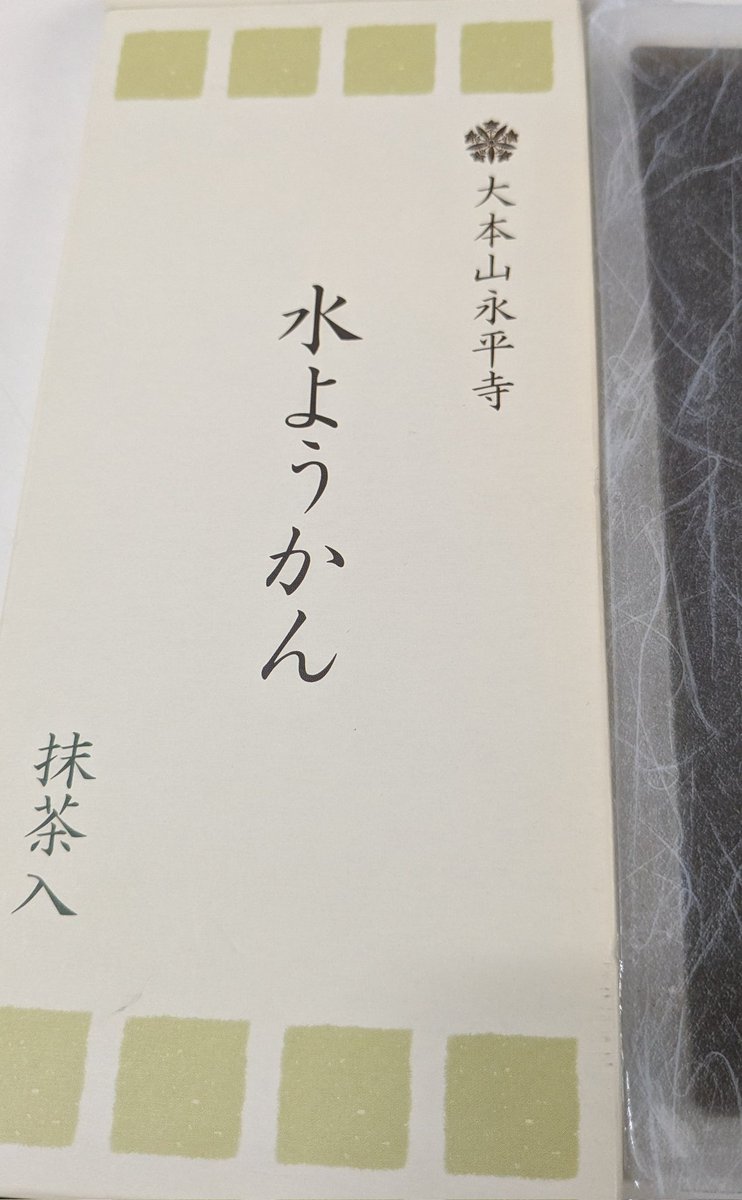 大本山永平寺
水ようかん
抹茶入